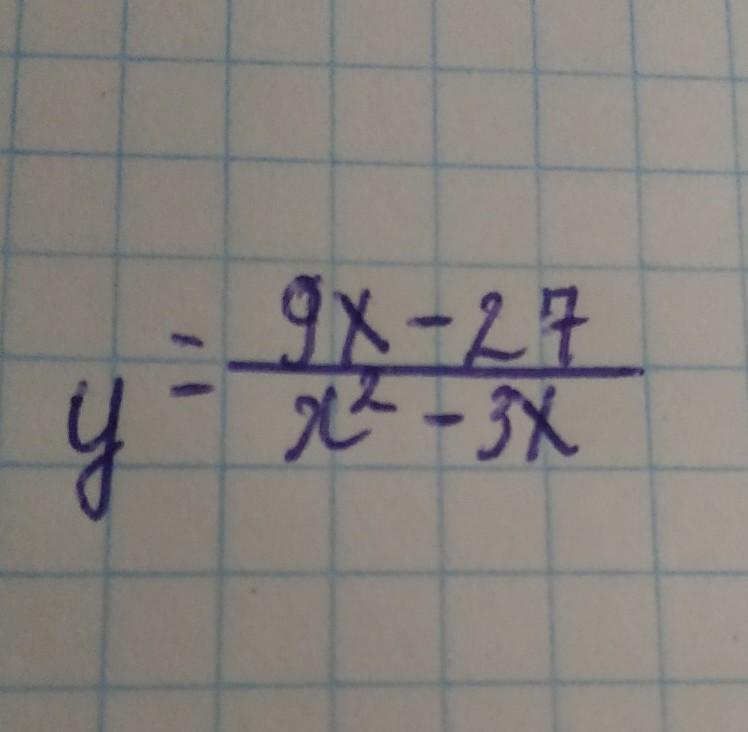 y = \frac{9x - 27}{x^2 - 3x}